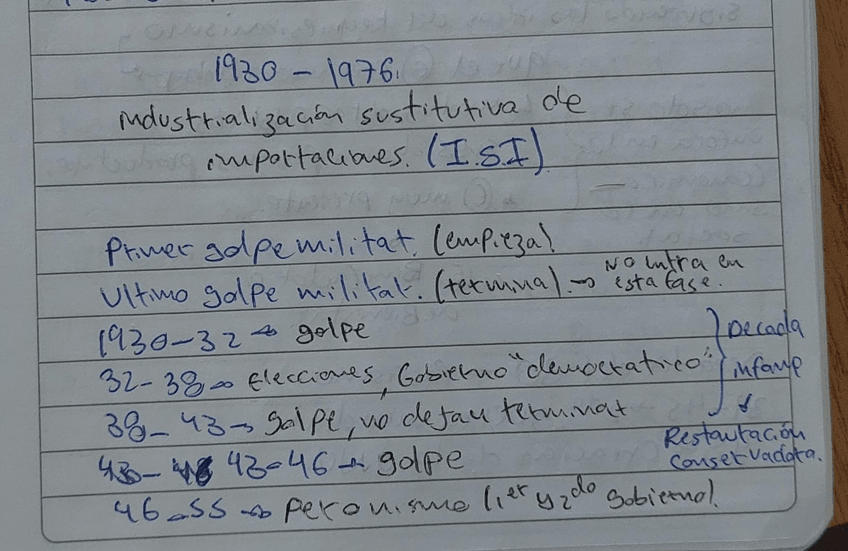 1930 - 1976.
Industrialización sustitutiva de
importaciones. (I.S.I)
Primer golpe militar. (empieza).
Ultimo golpe militar. (termina). → No entra en
esta fase.
1930-32 → golpe
32-38 → Elecciones, Gobierno "democratico"
38-43 → golpe, no dejan terminar
Decada
infame
↓
Restauración
conservadora.
43-46 → golpe
46-55 → Peronismo (1er y 2do gobierno).